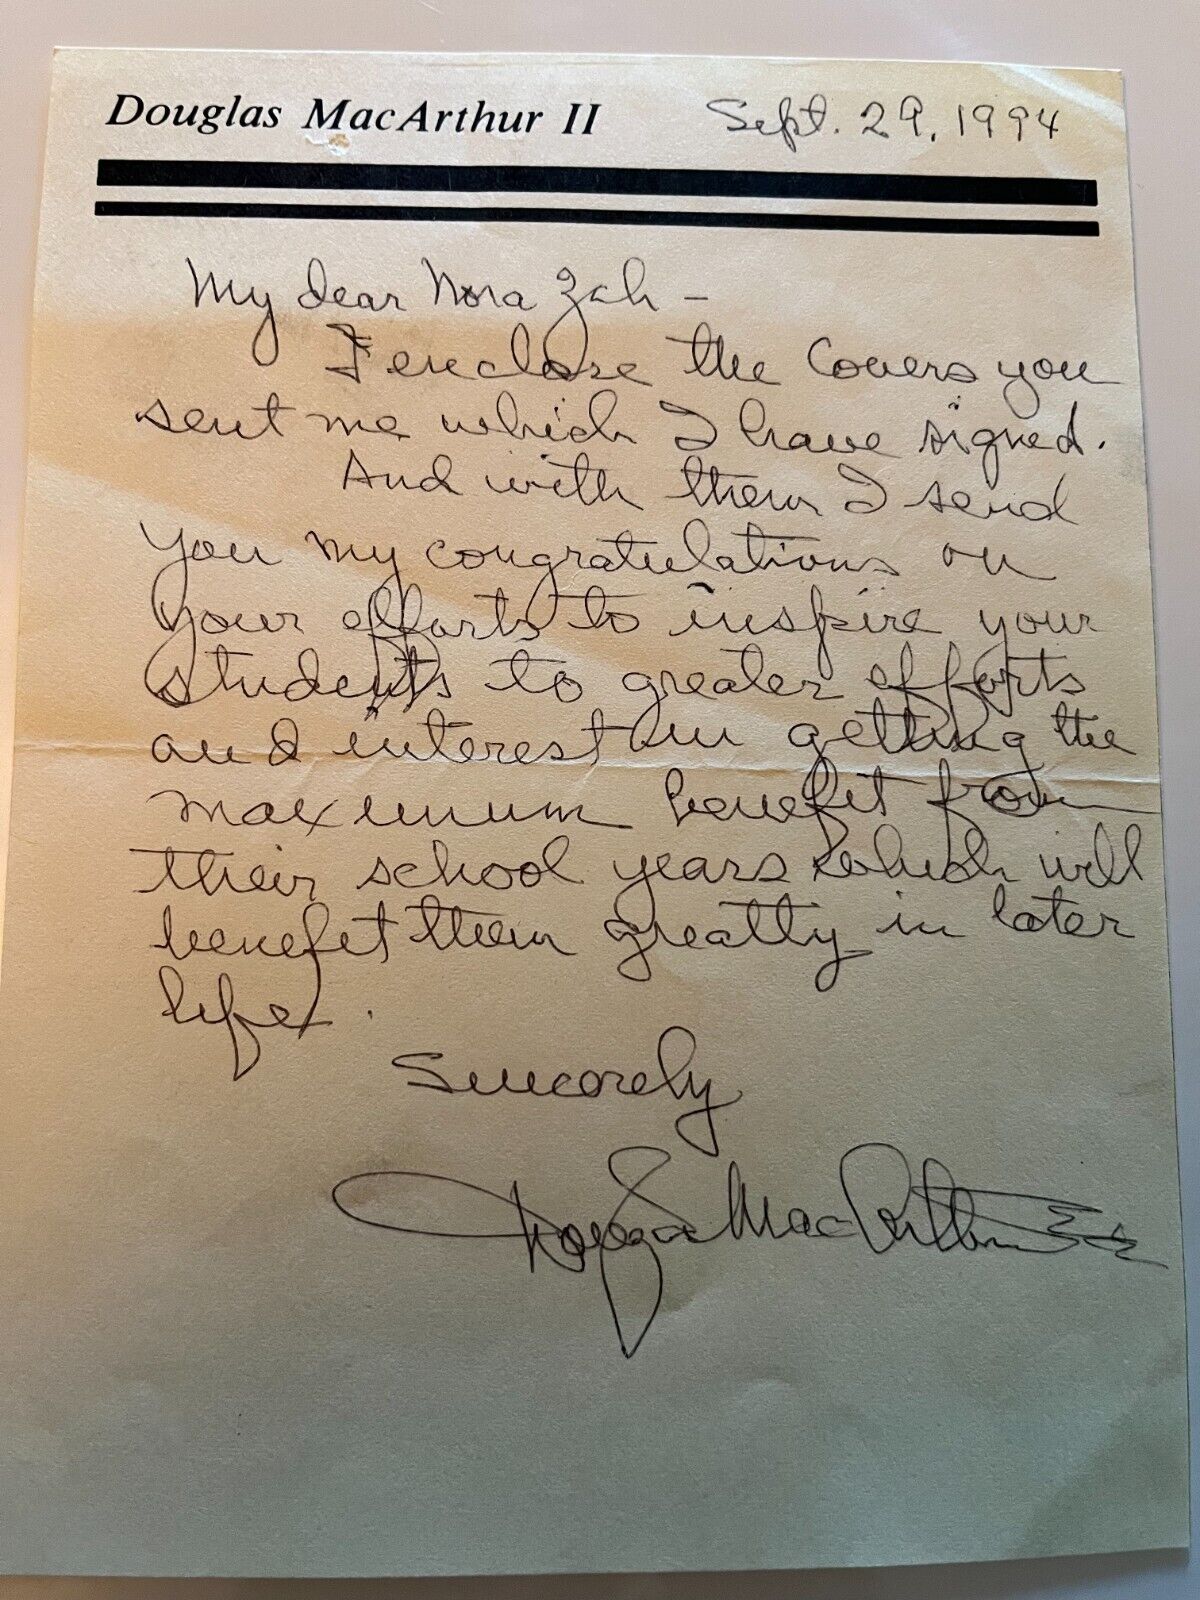 Douglas MacArthur II Sept. 29, 1994
My dear Nora Zah –
I enclose the covers you
sent me which I have signed.
And with them I send
you my congratulations on
your efforts to inspire your
students to greater efforts
and interest in getting the
maximum benefit from
their school years which will
benefit them greatly in later
life.
Sincerely
Douglas MacArthur II